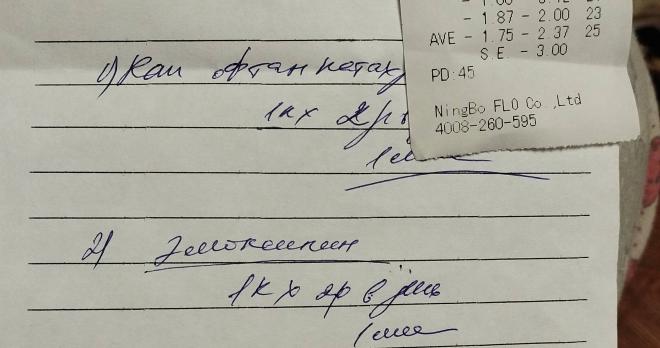 - 1.87 - 2.00 23
AVE - 1.75 - 2.37 25
S.E. - 3.00
PD:45
NingBo FLO Co.,Ltd
4008-260-595
1) Кап офтан катах
1к х 2р
1 мес
2) Эмоксипин
1к х 2р в день
1 мес